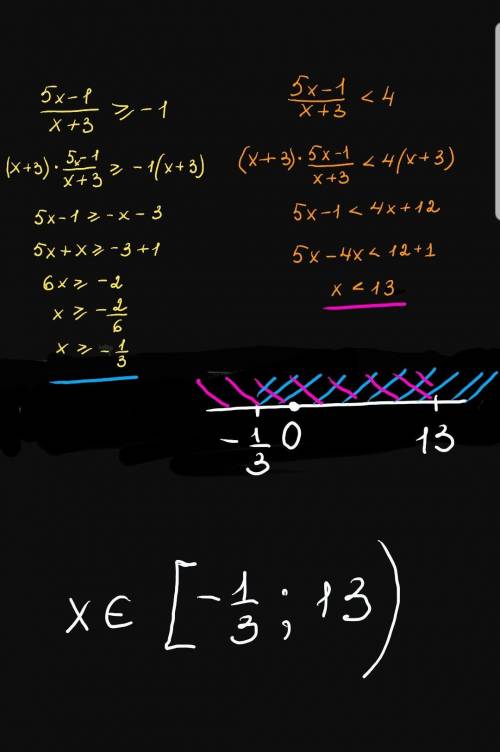 (5x-1)/(x+3) ≥ -1
(x+3)·(5x-1)/(x+3) ≥ -1(x+3)
5x-1 ≥ -x-3
5x+x ≥ -3+1
6x ≥ -2
x ≥ -2/6
x ≥ -1/3
(5x-1)/(x+3) < 4
(x+3)·(5x-1)/(x+3) < 4(x+3)
5x-1 < 4x+12
5x-4x < 12+1
x < 13
-1/3 0 13
x ∈ [-1/3; 13)